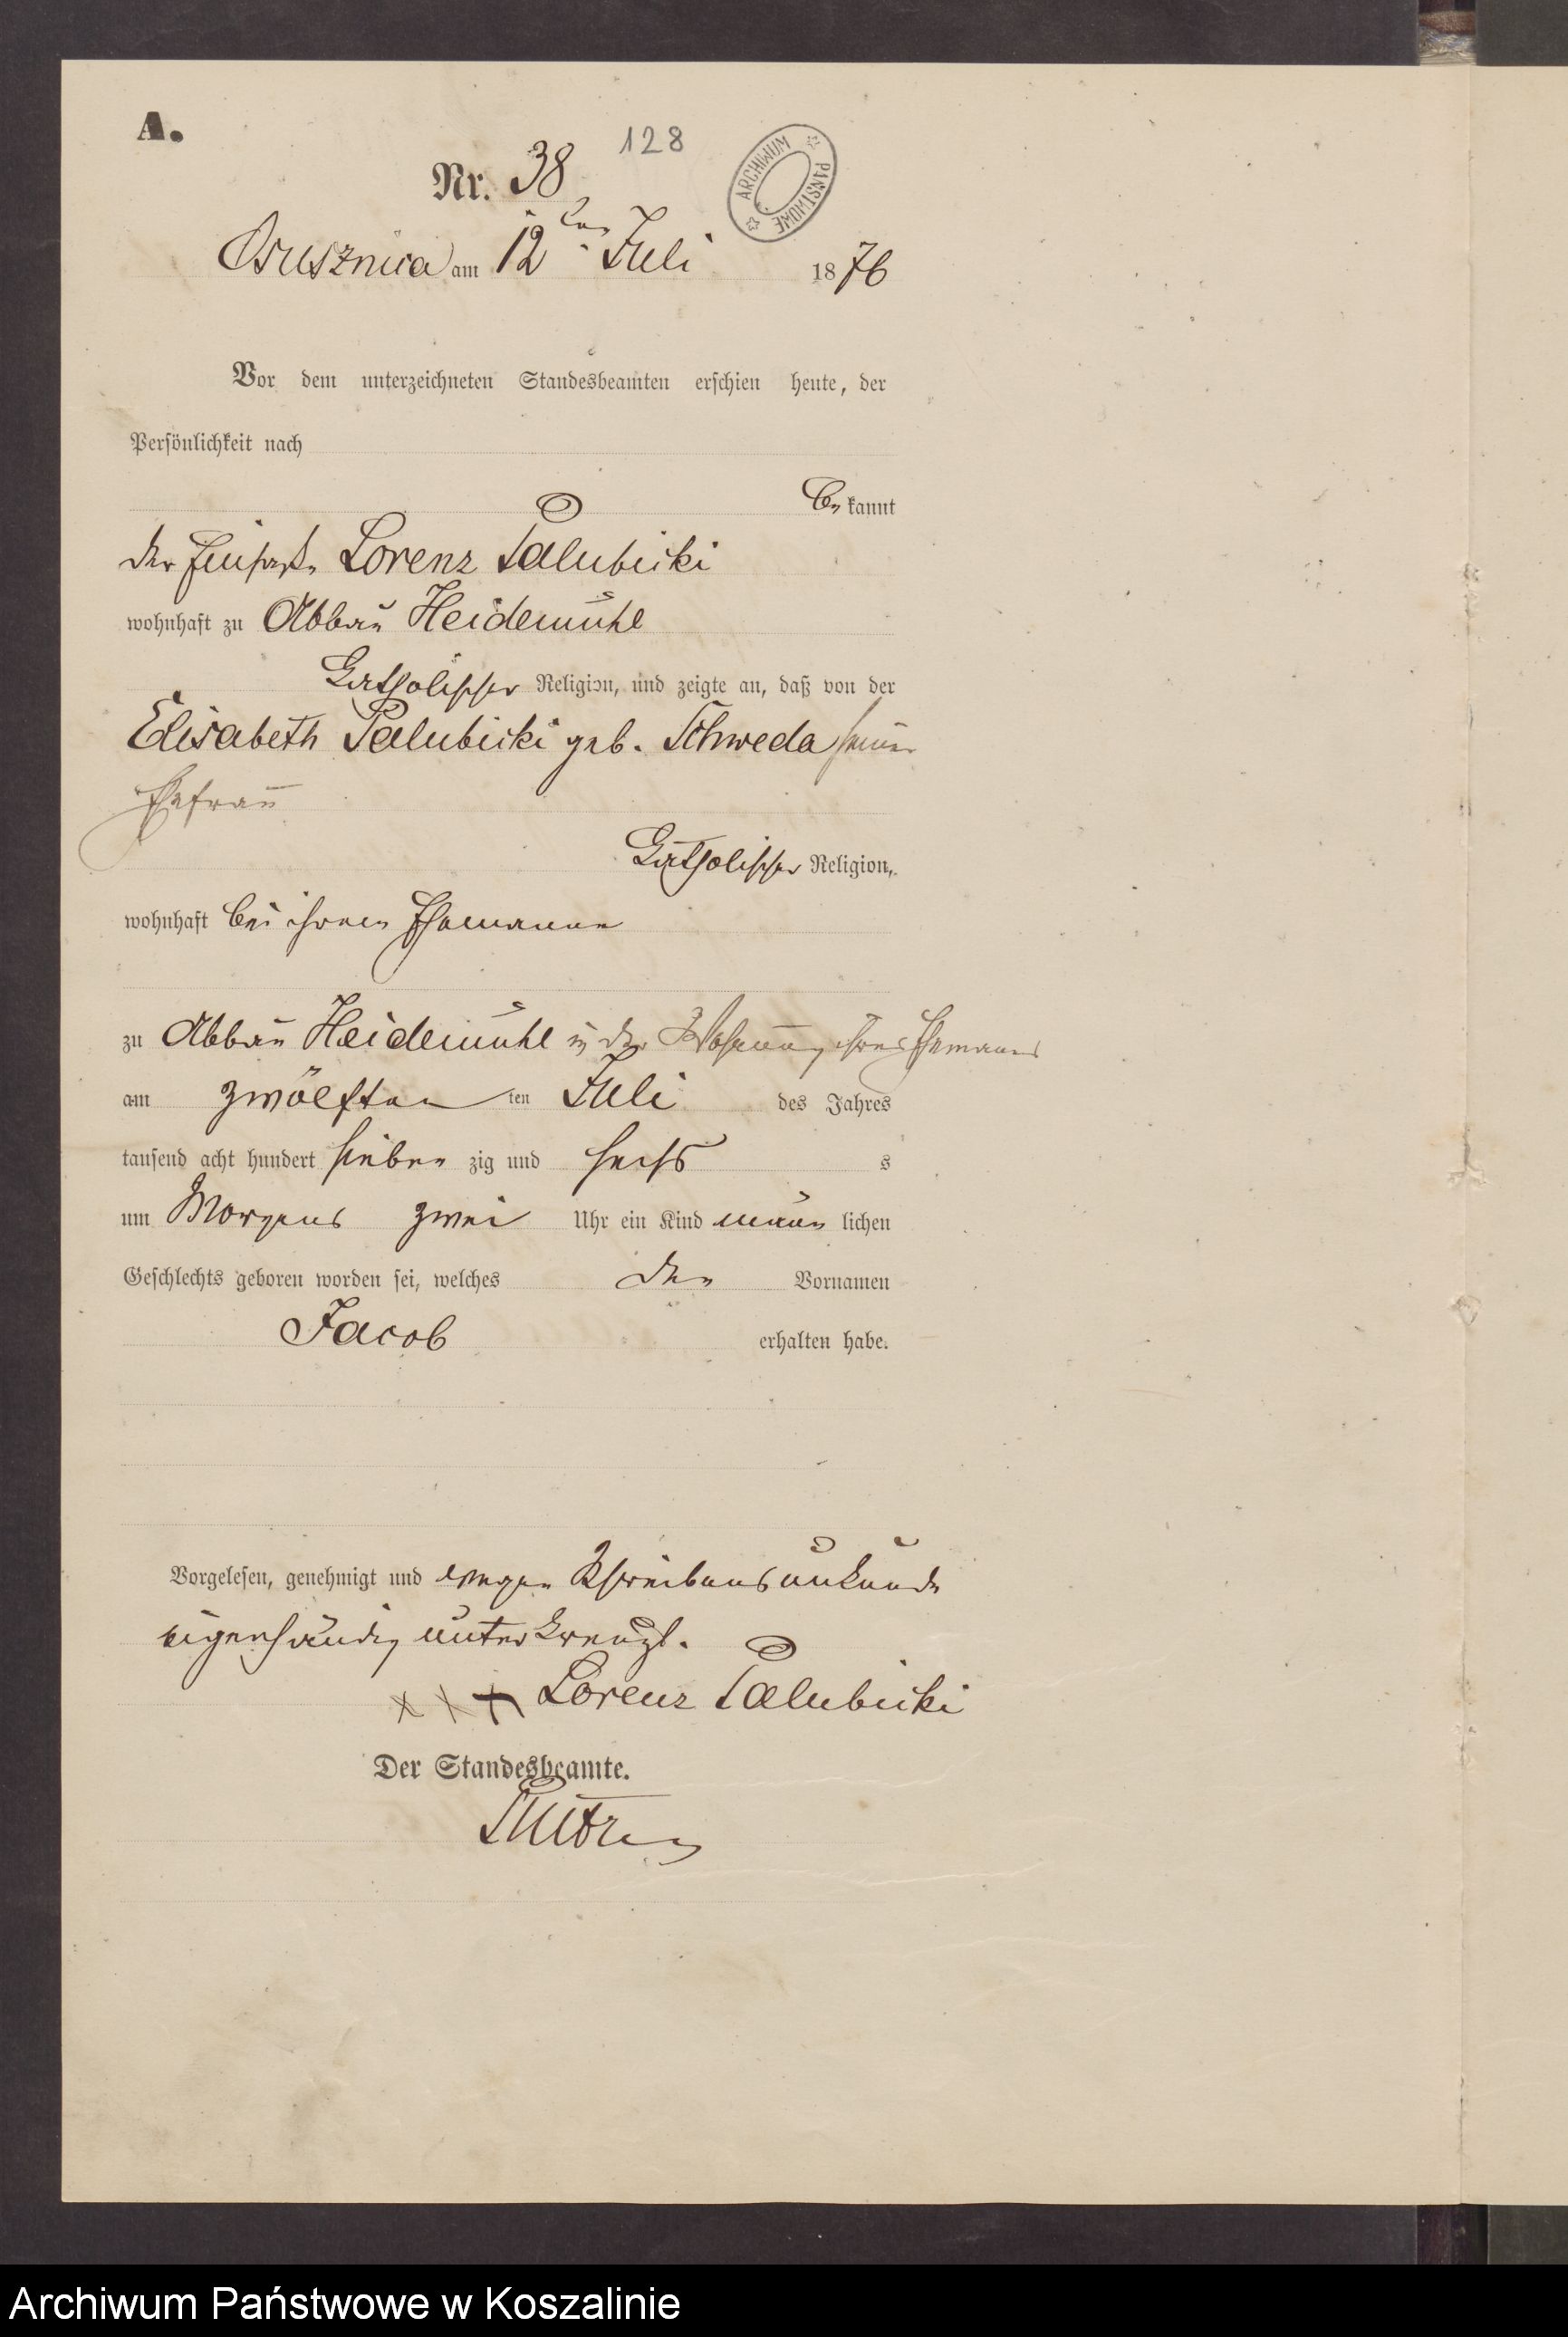 A.
128
ARCHIWUM PAŃSTWOWE
Nr. 38
Osusznica am 12ten Juli 1876
Vor dem unterzeichneten Standesbeamten erschien heute, der
Persönlichkeit nach
bekannt
der Lorenz Palubicki
wohnhaft zu Abbau Heidemühl
Catholischer Religion, und zeigte an, daß von der
Elisabeth Palubicki geb. Schweda seiner
Ehefrau
Catholischer Religion,
wohnhaft bei ihrem Ehemanne
zu Abbau Heidemühl in der Wohnung ihres Ehemannes
am zwölften ten Juli des Jahres
tausend acht hundert sieben zig und sechs s
um Morgens zwei Uhr ein Kind männ lichen
Geschlechts geboren worden sei, welches den Vornamen
Jacob erhalten habe.
Vorgelesen, genehmigt und wegen Schreibensunkunde
eigenhändig unterkreuzt.
x x x Lorenz Palubicki
Der Standesbeamte.
Archiwum Państwowe w Koszalinie